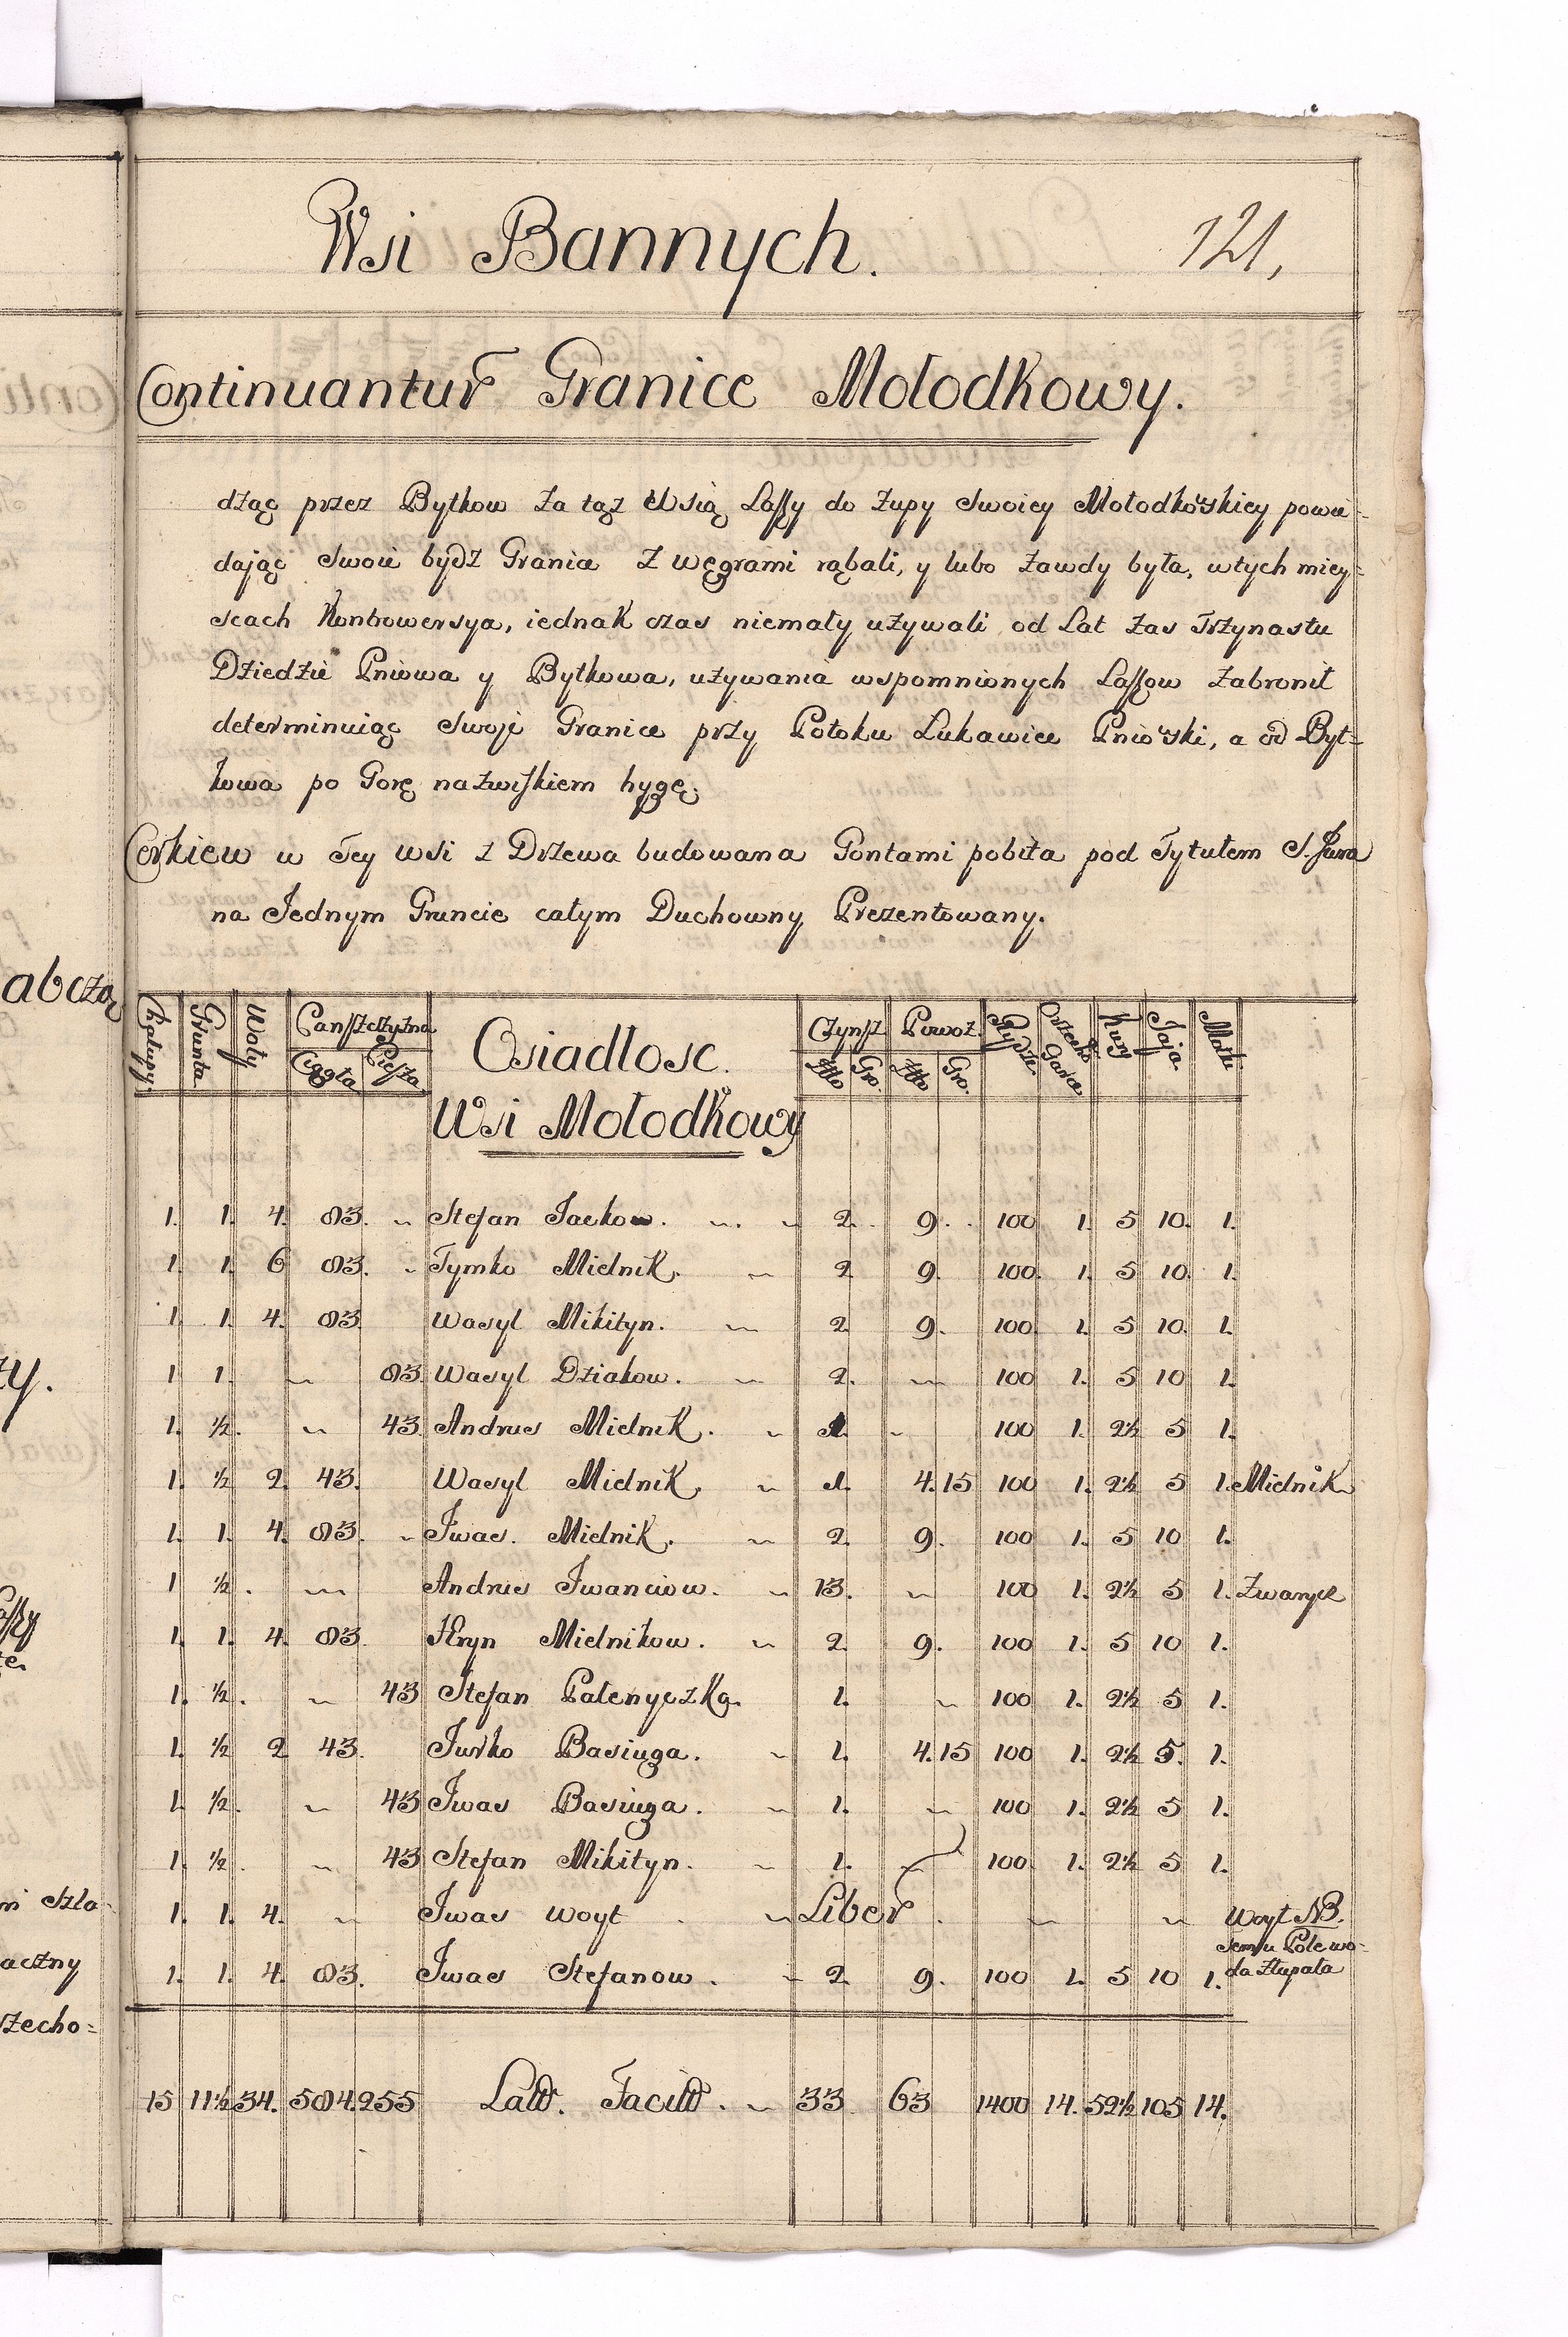 Wsi Bannych. 121,
Continuantur Granice Mołodkowy.
dząc przez Bytkow za tąż Wsią Lassy do żupy swoiey Mołodkowskiey powia-
dając swoie bydz Granice z węgrami rąbali, y lubo zawdy była, w tych miey-
scach Kontrowersya, iednak czas niemały używali od Lat zas Trzynastu
Dziedzic Pniowa y Bytkowa, używania wspomnionych Lassow zabronił
determinuiąc swoje Granice przy Potoku Łukawice Pniowski, a od Byt-
kowa po Gorę nazwiskiem hygę.
Cerkiew w Tey wsi z Drzewa budowana Gontami pobita pod Tytułem S. Jura
na Jednym Gruncie całym Duchowny Prezentowany.
Chałupy. Grunta Woły Panszczyzna Osiadłosc. Czynsz. Powoz. Kury Jaja. Motki
Ciągła Piesza Złte Gro. Złte Gro.
Wsi Mołodkowy
1. 1. 4. 83. ~ Stefan Jackow. ~. ~ 2. 9. 100 1. 5 10. 1.
1. 1. 6 83. ~ Tymko Mielnik. ~ 2 9. 100. 1. 5 10. 1.
1 1. 4. 83. Wasyl Mikityn. ~ 2 9. 100. 1. 5 10. 1.
1 1. ~ 83. Wasyl Dziakow. ~ 2. ~ 100 1. 5 10 1.
1. ½. ~ 43 Andrus Mielnik. ~ 1. ~ 100 1. 2½ 5 1.
1. ½ 2. 43. Wasyl Mielnik. ~ 1. 4. 15 100 1. 2½ 5 1. Mielnik
1. 1. 4. 83. ~ Iwas. Mielnik. ~ 2. 9. 100 1. 5 10 1.
1 ½. ~ Andrus Iwanciow. ~ 13. ~ 100 1. 2½ 5 1. Zwarycz
1. 1. 4. 83. Hryn Mielnikow. ~ 2. 9. 100 1. 5 10 1.
1. ½. ~ 43 Stefan Pałenyczka. 1. ~ 100 1. 2½ 5 1.
1. ½ 2 43. Jurko Basiuga. ~ 1. 4. 15 100 1. 2½ 5. 1.
1. ½. ~ 43 Iwas Basiuga. ~ 1. ~ 100 1. 2½ 5 1.
1. ½. ~ 43 Stefan Mikityn. ~ 1. ~ 100. 1. 2½ 5 1.
1. 1. 4. ~ Iwas Woyt. ~ Liber. ~ ~ Woyt NB.
Temu Pole wo-
1. 1. 4. 83. Iwas Stefanow. ~ 2. 9. 100 1. 5 10 1. da złupała
15 11½ 34. 584. 255 Facit. ~ 33 63 1400 14. 52½ 105 14.